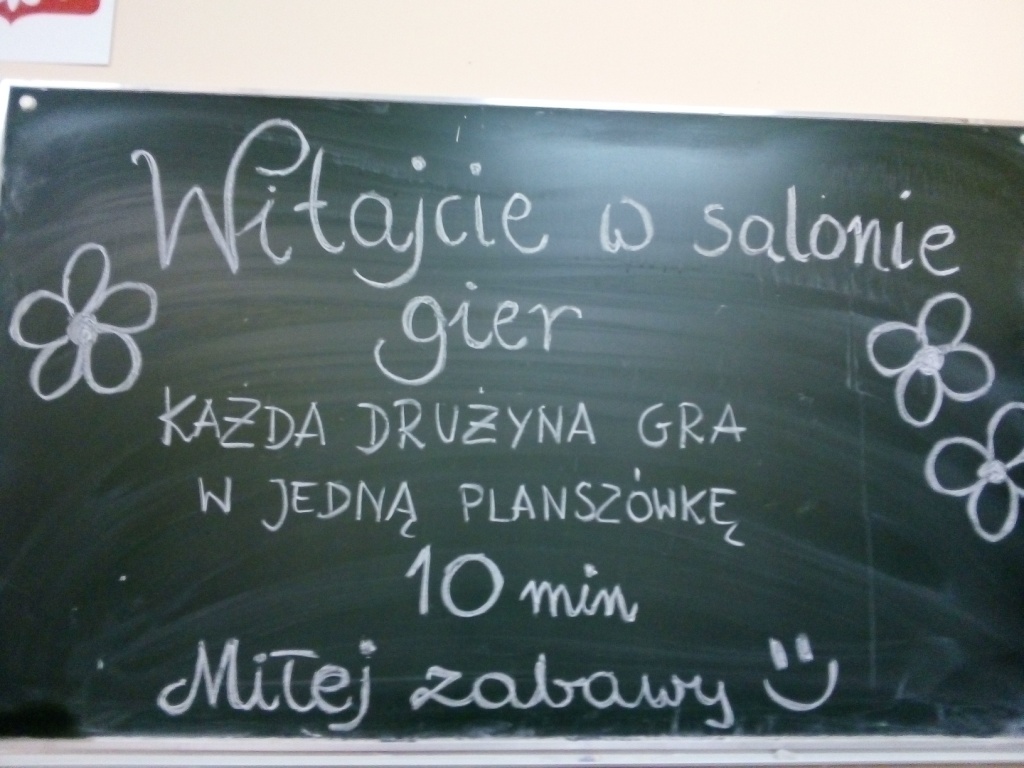 Witajcie w salonie
gier
KAŻDA DRUŻYNA GRA
W JEDNĄ PLANSZÓWKĘ
10 min
Miłej zabawy